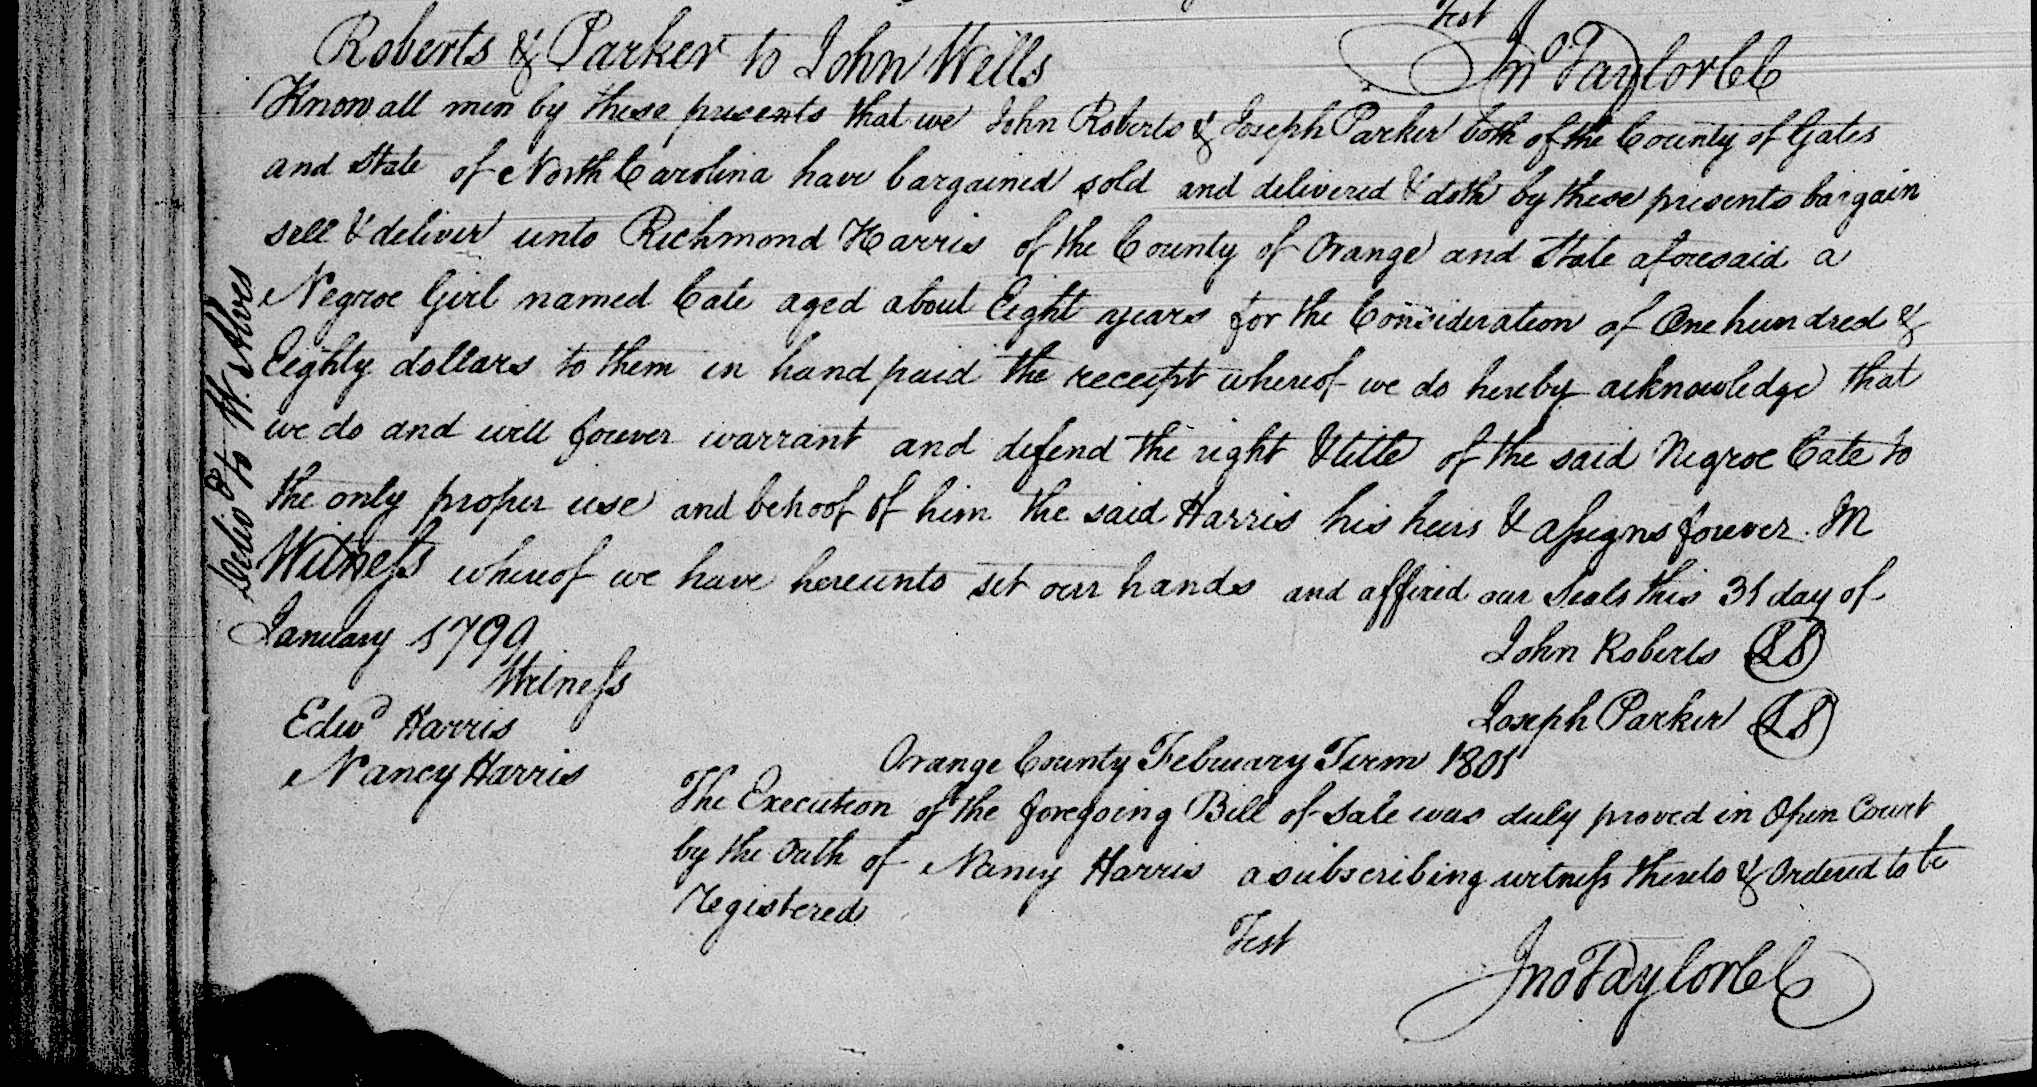 Test
Roberts & Parker to John Wells
Jno Taylor Cl
Know all men by these presents that we John Roberts & Joseph Parker both of the County of Gates
and State of North Carolina have bargained sold and delivered & doth by these presents bargain
sell & deliver unto Richmond Harris of the County of Orange and State aforesaid a
Negroe Girl named Cate aged about Eight years for the Consideration of One hundred &
Eighty dollars to them in hand paid the receipt whereof we do hereby acknowledge that
we do and will forever warrant and defend the right & title of the said Negroe Cate to
the only proper use and behoof of him the said Harris his heirs & assigns forever. In
Witness whereof we have hereunto set our hands and affixed our Seals this 31 day of
January 1799
John Roberts LS
Witness
Joseph Parker LS
Edwd Harris
Nancy Harris
Orange County February Term 1801
The Execution of the foregoing Bill of Sale was duly proved in Open Court
by the Oath of Nancy Harris a subscribing witness thereto & Ordered to be
Registered
Test
Jno Taylor Cl
Delivd to W. Alves